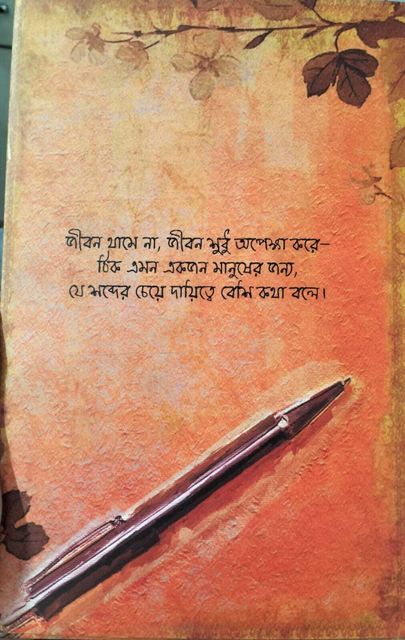 জীবন থামে না, জীবন শুধু অপেক্ষা করে–
ঠিক এমন একজন মানুষের জন্য,
যে শব্দের চেয়ে দায়িত্বে বেশি কথা বলে।